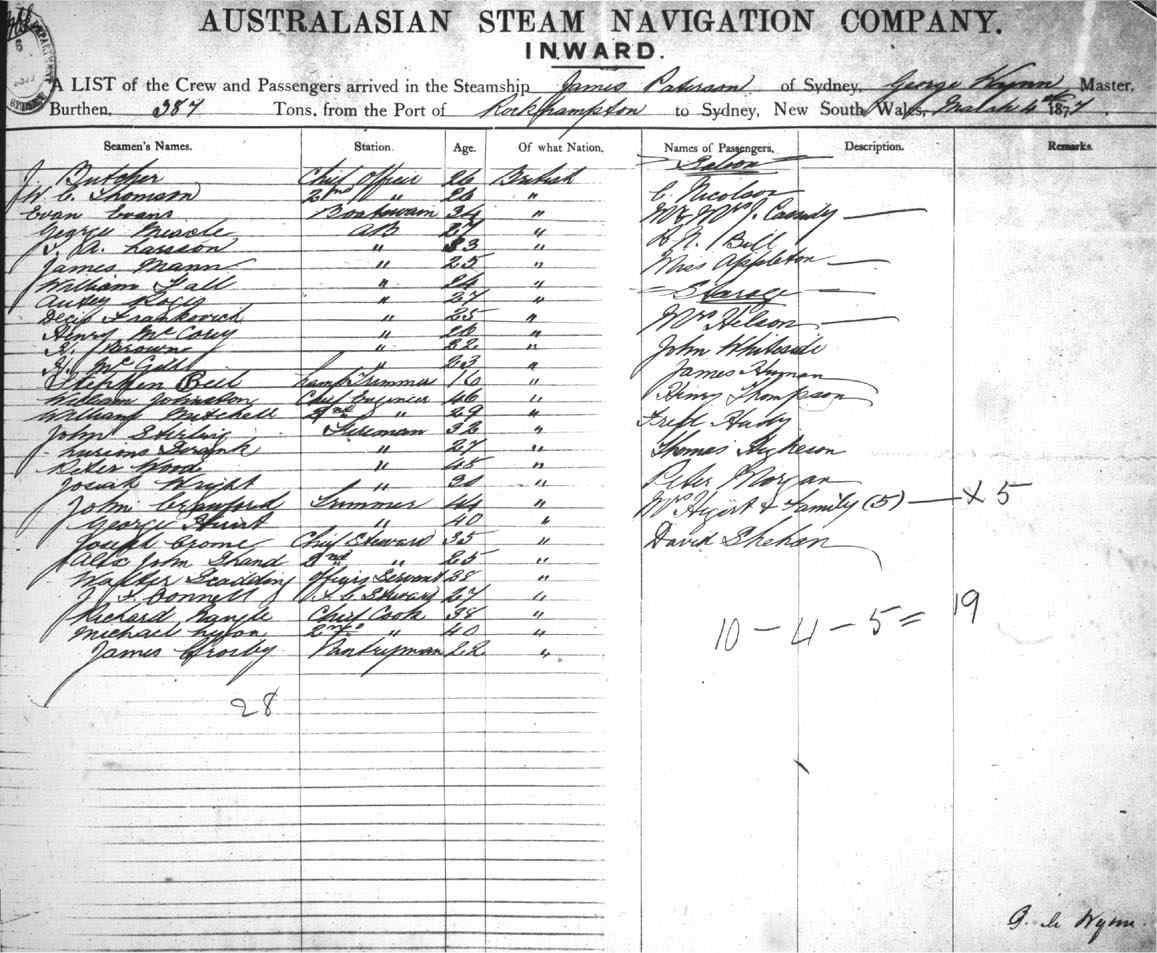 AUSTRALASIAN STEAM NAVIGATION COMPANY.
INWARD.
A LIST of the Crew and Passengers arrived in the Steamship James Paterson of Sydney, George Wynn Master,
Burthen, 387 Tons, from the Port of Rockhampton to Sydney, New South Wales, March 4th 1877
Seamen's Names. Station. Age. Of what Nation. Names of Passengers, Description. Remarks.
Saloon
J. Butcher Chief Officer 26 British
W. C. Thomson 2nd " 26 " C. Nicolson
Evan Evans Boatswain 34 " Mr & Mrs J. Cassidy
George AB 27 "
A. Larsson " 33 " R. N. Bell
James Mann " 25 " Miss Appleton
William Fall " 24 "
" 27 " Steerage
Frankovich " 25 "
Henry McCony " 26 " Mrs Hilson
H. Brown " 32 " John Whiteside
H. McGill " 23 "
Stephen Bell Lamp Trimmer 16 " James
William Johnston Chief Engineer 46 " Henry Thompson
William Mitchell 2nd " 29 "
John Stirling Fireman 32 " Fred Hardy
" 27 " Thomas
Peter Wood " 45 "
Josiah Wright " 30 " Peter Morgan
John Crawford Trimmer 44 " Mrs & Family (5) X 5
George Hunt " 40 "
Joseph Crome Chief Steward 35 " David Shehan
Alex John Shand 2nd " 25 "
Walter Scadding Officers Servant 38 "
J. F. Bonnell F. C. Steward 27 "
Richard Chief Cook 38 "
Michael 2nd " 40 "
James Crosby Pantryman 22 "
10 - 4 - 5 = 19
28
Wynn